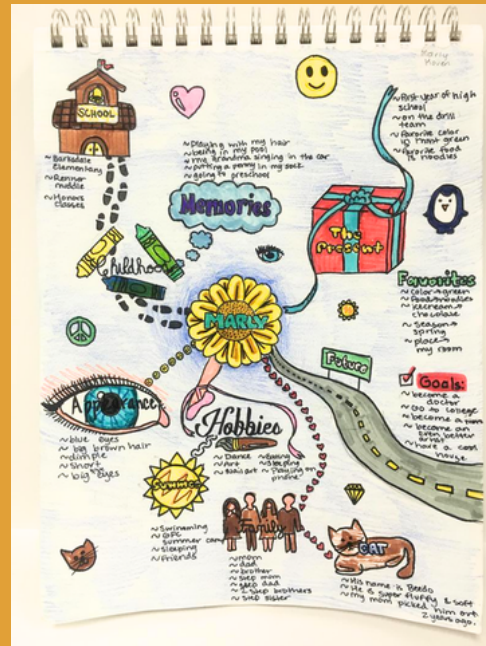 Marly
SCHOOL
~ Barksdale
elementary
~ Renner
middle
~ Honors
classes
~ Playing with my hair
~ being in my pool
~ my grandma singing in the car
~ putting a penny in my sock
~ going to preschool
Memories
~ First year of high
school
~ on the drill
team
~ favorite color
is mint green
~ favorite food
is noodles
The
Present
Childhood
MARLY
Favorites
~ color → green
~ Food → noodles
~ icecream →
chocolate
~ Season →
spring
~ place →
my room
Future
Goals:
~ become a
doctor
~ Go to college
~ become a mom
~ become an
even better
artist
~ have a cool
house
Appearance
~ blue eyes
~ big brown hair
~ dimple
~ short
~ big eyes
Hobbies
~ Dance
~ Art
~ Nail art
~ Sleeping
~ Playing on
phone
SUMMER
~ Swimming
summer camp
~ sleeping
~ friends
Family
~ mom
~ dad
~ brother
~ step mom
~ step dad
~ 2 step brothers
~ step sister
CAT
~ His name is Beedo
~ He is super fluffy & soft
~ my mom picked him out
2 years ago.